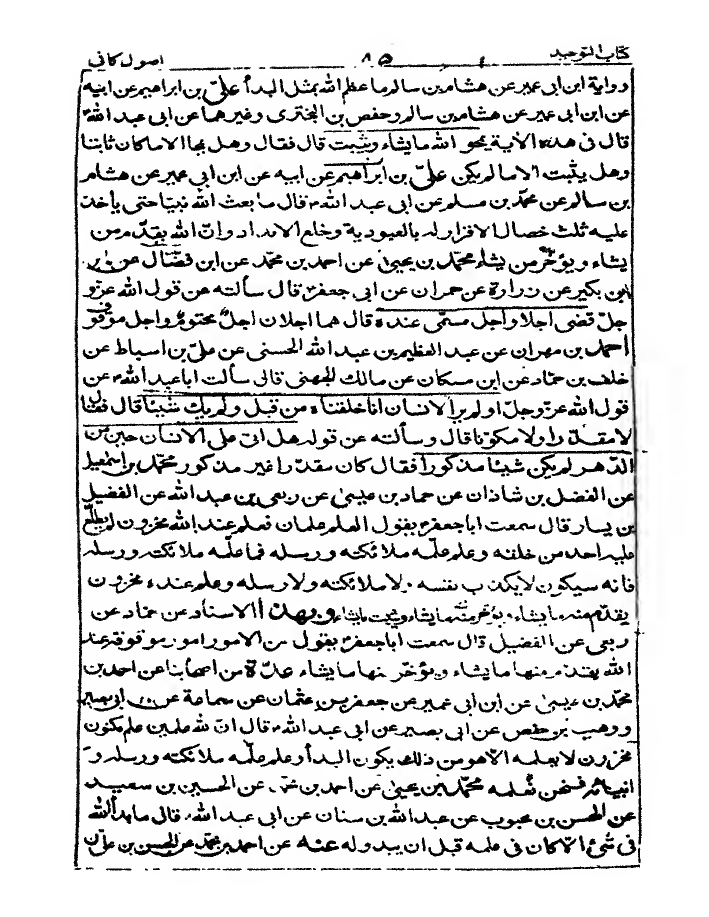 كتاب التوحيد ٨٥ اصول كافى
رواية ابن ابى عمير عن هشام بن سالم ما عظم الله بمثل البدأ علىّ بن ابراهيم عن ابيه
عن ابن ابى عمير عن هشام بن سالم وحفص بن البخترى وغيرهما عن ابى عبد الله ع
قال فى هذه الآية يمحو الله ما يشاء ويثبت قال فقال وهل يمحا الا ما كان ثابتا
وهل يثبت الا ما لم يكن علىّ بن ابراهيم عن ابيه عن ابن ابى عمير عن هشام
بن سالم عن محمّد بن مسلم عن ابى عبد الله ع قال ما بعث الله نبيّا حتى يأخذ
عليه ثلث خصال الاقرار له بالعبودية وخلع الانداد وانّ الله يقدّم من
يشاء ويؤخّر من يشاء محمّد بن يحيى عن احمد بن محمّد عن ابن فضّال عن
ابن بكير عن زرارة عن حمران عن ابى جعفر ع قال سألته عن قول الله عزّ و
جلّ قضى اجلا واجل مسمّى عنده قال هما اجلان اجل محتوم واجل موقوف
احمد بن مهران عن عبد العظيم بن عبد الله الحسنى عن علىّ بن اسباط عن
خلف بن حمّاد عن ابن مسكان عن مالك الجهنى قال سألت ابا عبد الله ع عن
قول الله عزّ وجلّ اولم ير الانسان انا خلقناه من قبل ولم يك شيئا قال فقال
لا مقدّرا ولا مكوّنا قال وسألته عن قوله هل اتى على الانسان حين من
الدّهر لم يكن شيئا مذكورا فقال كان مقدّرا غير مذكور محمّد بن اسمعيل
عن الفضل بن شاذان عن حماد بن عيسى عن ربعى بن عبد الله عن الفضيل
بن يسار قال سمعت ابا جعفر ع يقول العلم علمان فعلم عند الله مخزون لم يطلع
عليه احد من خلقه وعلم علّمه ملائكته ورسله فما علّمه ملائكته ورسله
فانه سيكون لا يكذب نفسه ولا ملائكته ولا رسله وعلم عنده مخزون
يقدّم منه ما يشاء ويؤخر منه ما يشاء ويثبت ما يشاء وبهذا الاسناد عن حمّاد عن
ربعى عن الفضيل قال سمعت ابا جعفر ع يقول من الامور امور موقوفة عند
الله يقدّم منها ما يشاء ويؤخّر منها ما يشاء عدّة من اصحابنا عن احمد بن
محمّد بن عيسى عن ابن ابى عمير عن جعفر بن عثمان عن سماعة عن ابى بصير
ووهيب بن حفص عن ابى بصير عن ابى عبد الله ع قال انّ لله علمين علم مكنون
مخزون لا يعلمه الّا هو من ذلك يكون البدأ وعلم علّمه ملائكته ورسله و
انبيائه فنحن نعلمه محمّد بن يحيى عن احمد بن محمّد عن الحسين بن سعيد
عن الحسن بن محبوب عن عبد الله بن سنان عن ابى عبد الله ع قال ما بدأ لله
فى شئ الا كان فى علمه قبل ان يبدو له عنه عن احمد بن محمّد عن الحسن بن على بن